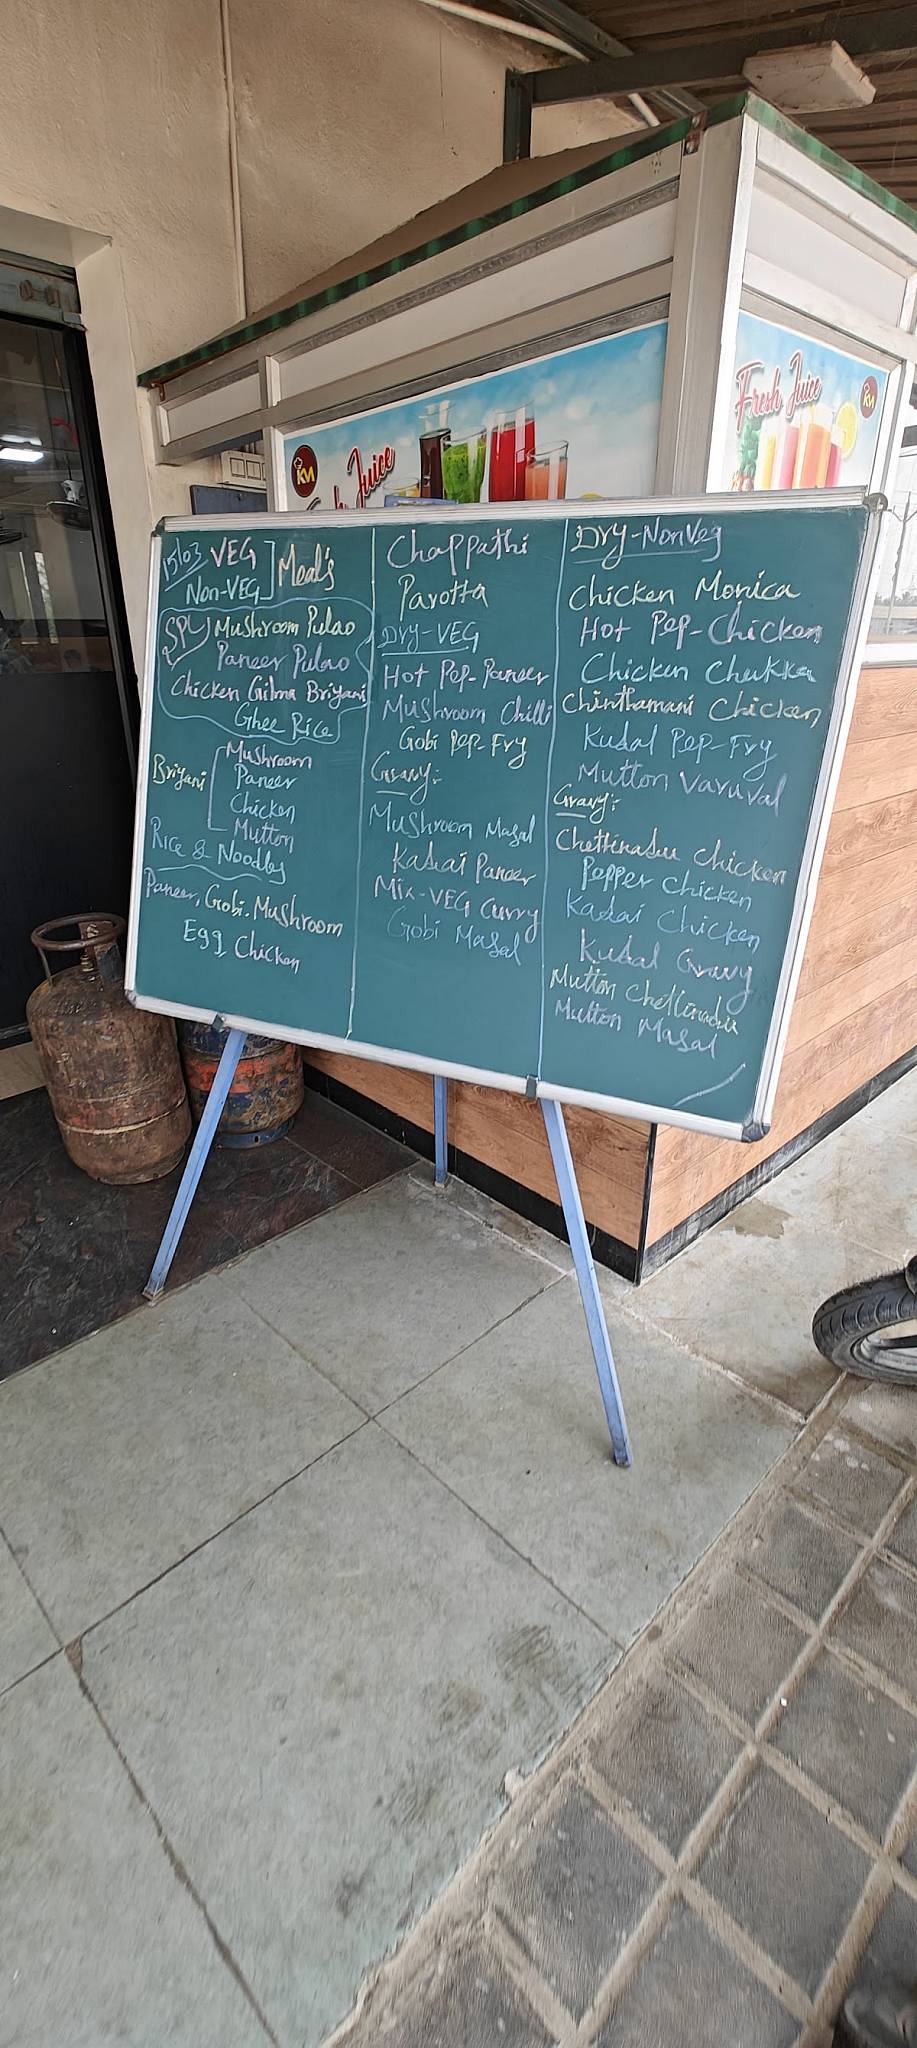 KM
Fresh Juice
Fresh Juice
KM
15/03 VEG
Non-VEG
Meal's
SPL Mushroom Pulao
Paneer Pulao
Chicken Gilma Briyani
Ghee Rice
Briyani
Mushroom
Paneer
Chicken
Mutton
Rice & Noodles
Paneer, Gobi, Mushroom
Egg, Chicken
Chappathi
Parotta
DRY-VEG
Hot Pep-Paneer
Mushroom Chilli
Gobi Pep-Fry
Gravy:-
Mushroom Masal
Kadai Paneer
Mix-VEG Curry
Gobi Masal
DRY-NonVeg
Chicken Monica
Hot Pep-Chicken
Chicken Chukka
Chinthamani Chicken
Kudal Pep-Fry
Mutton Varuval
Gravy:-
Chettinadu Chicken
Pepper Chicken
Kadai Chicken
Kudal Gravy
Mutton Chettinadu
Mutton Masal